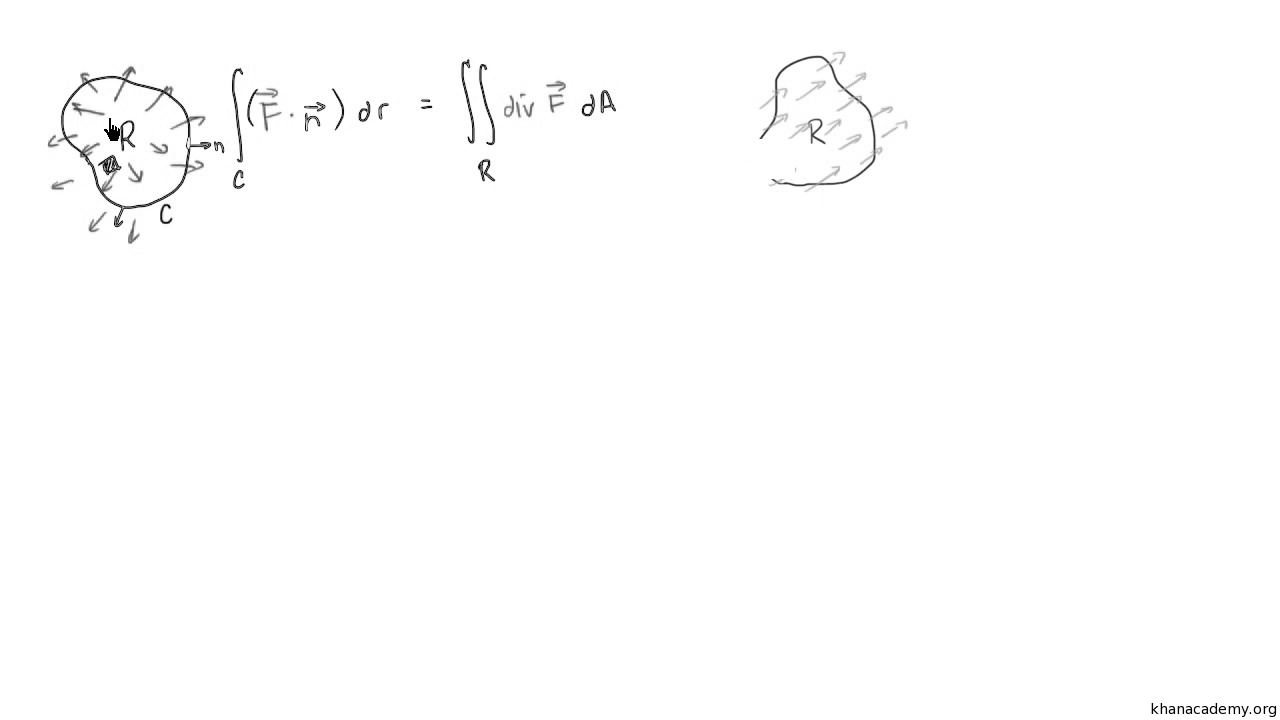 R n ∫ ( F⃗ · n⃗ ) dr = ∬ div F⃗ dA R
C C R
khanacademy.org